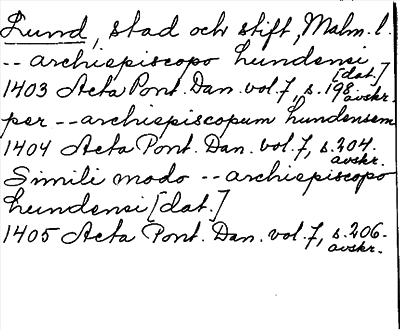 Lund, stad och stift, Malm. l.
-- archiepiscopo lundensi [dat.]
1403 Acta Pont. Dan. vol. 7, s. 198 avskr.
per -- archiepiscopum lundensem
1404 Acta Pont. Dan. vol. 7, s. 204. avskr.
Simili modo -- archiepiscopo
lundensi [dat.]
1405 Acta Pont. Dan. vol. 7, s. 206. avskr.